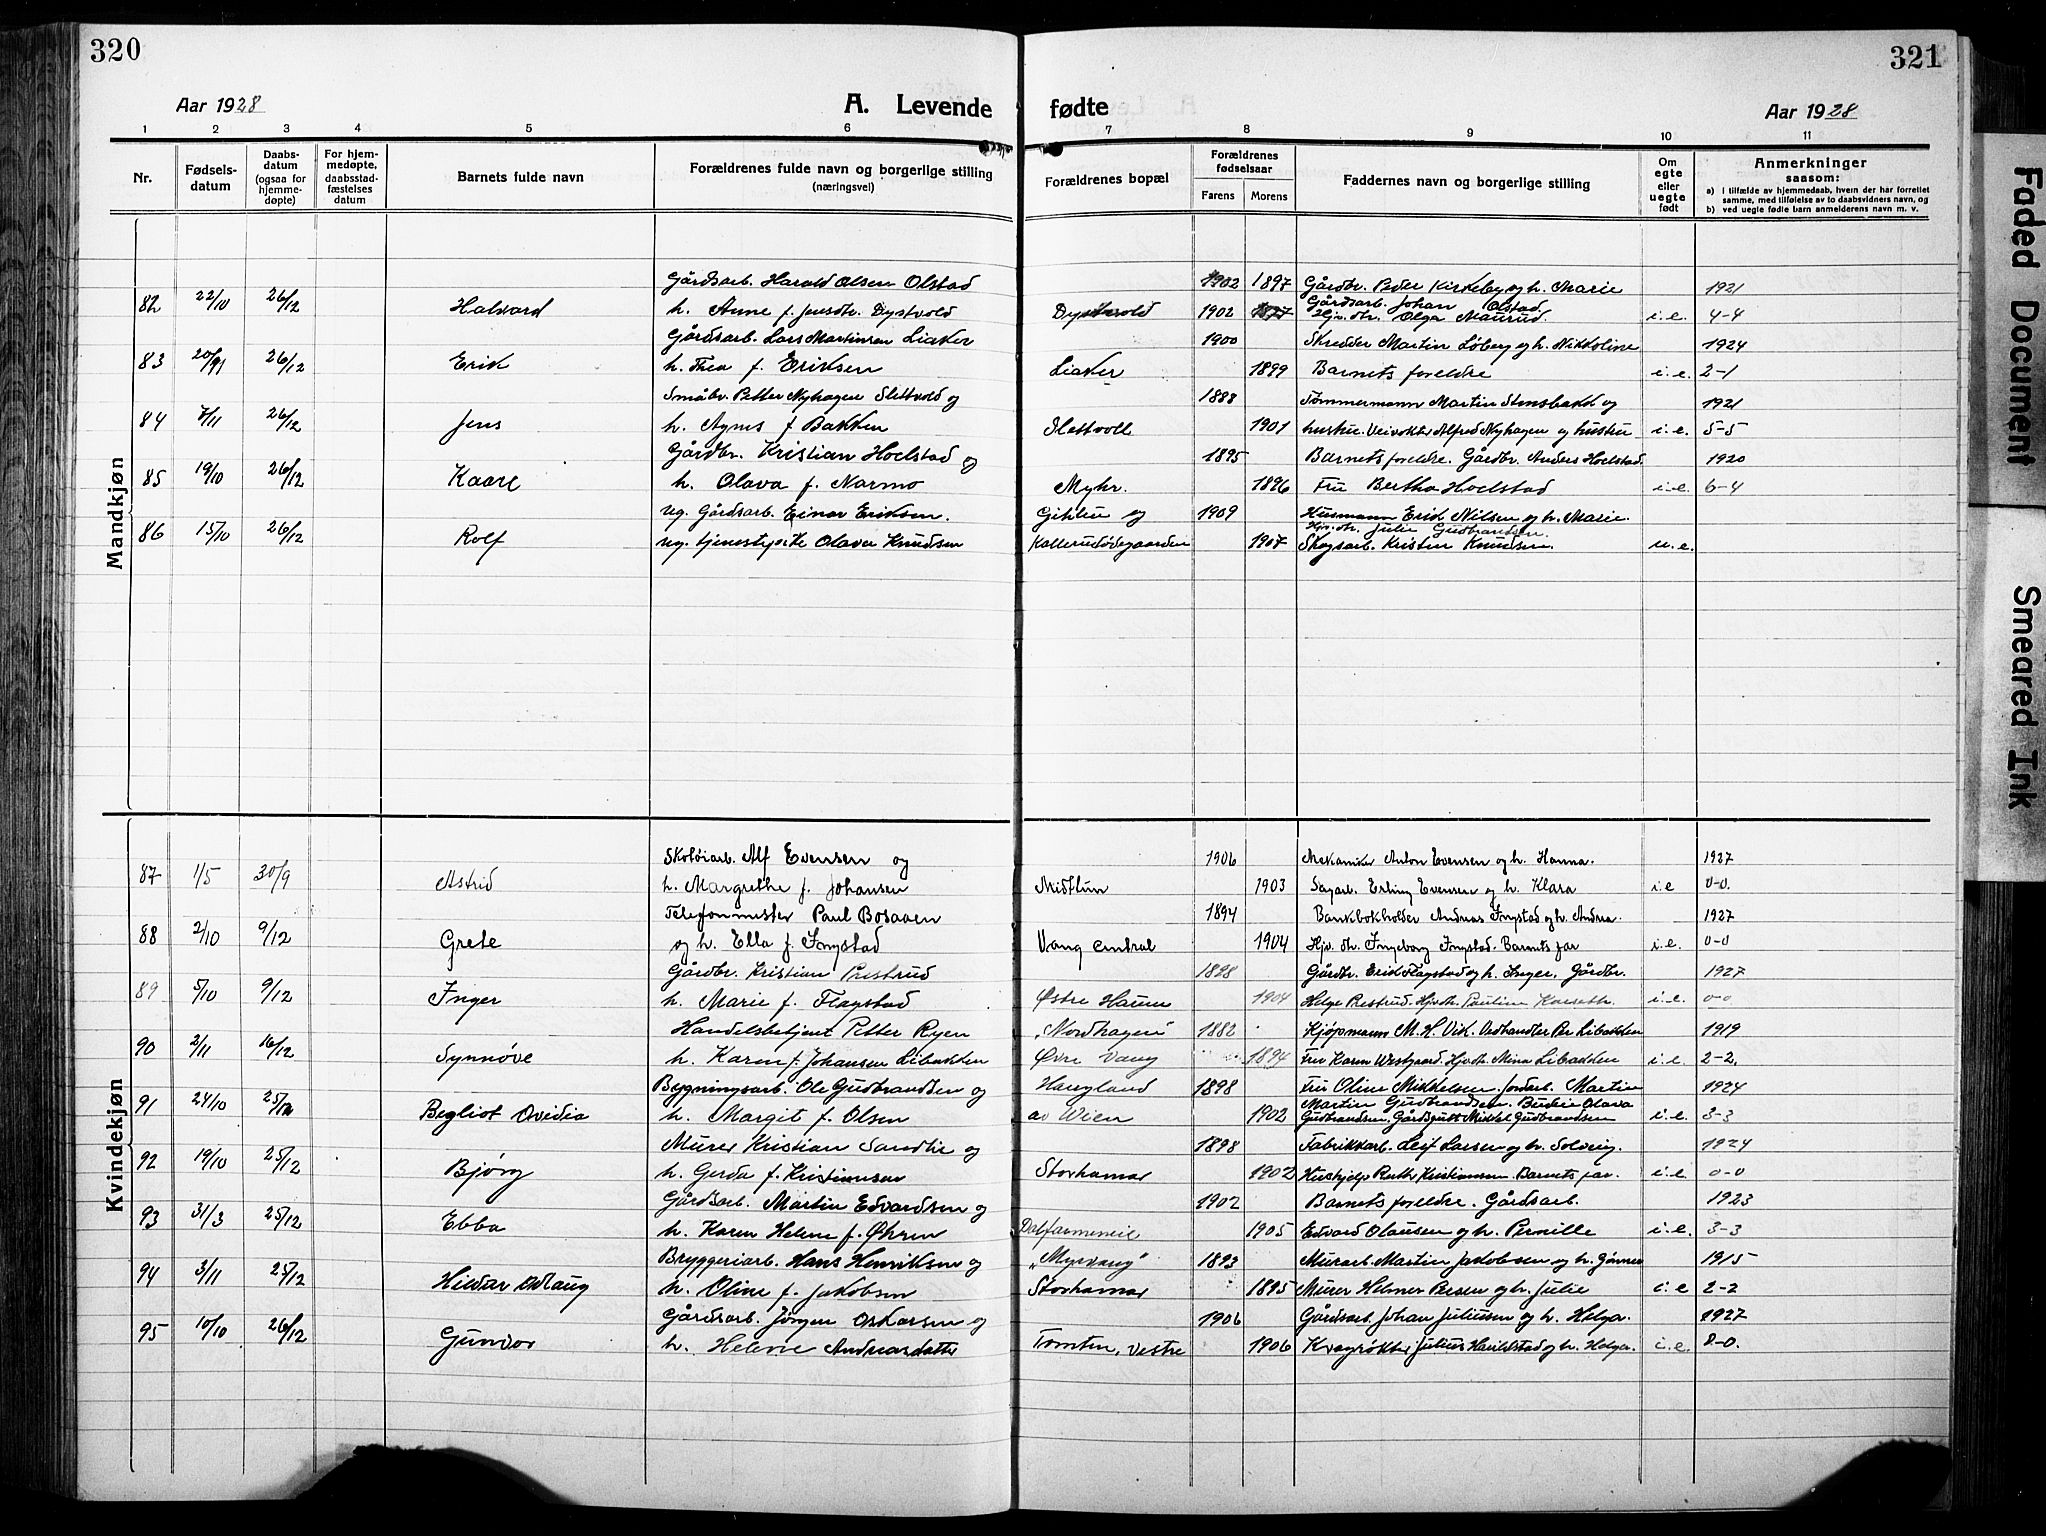 320
321
Aar 1928
A. Levende fødte
Aar 1928
1 2 3 4 5 6 7 8 9 10 11
Nr.
Fødselsdatum
Daabsdatum (ogsaa for hjemmedøpte)
For hjemmedøpte, daabsstadfæstelses datum
Barnets fulde navn
Forældrenes fulde navn og borgerlige stilling (næringsvei)
Forældrenes bopæl
Forældrenes fødselsaar
Farens
Morens
Faddernes navn og borgerlige stilling
Om egte eller uegte født
Anmerkninger saasom:
a) i tilfælde av hjemmedaab, hvem der har forrettet samme, med tilføielse av to daabsvidners navn, og
b) ved uegte fødte barn anmelderens navn m. v.
Mandkjøn
Gårdsarb. Harald Olsen Olstad 1902 1897 Gårdbr. Peder Kirkeby og h. Marie 1921
82 22/10 26/12 Halvard h. Anne f. Jensdtr. Dystvold Dystvold 1902 Gårdsarb. Johan Olstad. Hjv. dtr. Olga Maurud. i.e. 4-4
Gårdsarb. Lars Martinsen Liaker 1900 Skredder Martin Løberg og h. Nikoline 1924
83 26/12 Erik h. Thea f. Eriksen Liaker 1899 Barnets foreldre i.e. 2-1
Småbr. Petter Nyhagen Slettvold og 1888 Tømmermann Martin Stensbakk og 1921
84 7/11 26/12 Jens h. Agnes f. Bakken Slettvoll 1901 hustru. Veivokter Alfred Nyhagen og hustru i.e. 5-5
Gårdbr. Kristian Hoelstad og 1895 Barnets foreldre. Gårdbr. Anders Hoelstad. 1920
85 19/10 26/12 Kaare h. Olava f. Narmo Myhr. 1896 Fru Bertha Hoelstad i.e. 6-4
ug. Gårdsarb. Einar Eriksen. Gihlu og 1909 Husmann Erik Nilsen og h. Marie.
86 15/10 26/12 Rolf ug. tjenestepike Olava Knudsen Kallerudødegaarden 1907 Hjv. dtr. Julie Gudbrandsen. Skogsarb. Kristin Knudsen. u.e.
Kvindekjøn
Skotøiarb. Alf Evensen og 1906 Mekaniker Anton Evensen og h. Hanna. 1927
87 1/5 30/9 Astrid h. Margrethe f. Johansen Midttun 1903 Sagarb. Erling Evensen og h. Klara i.e 0-0.
Telefonmester Paul Bosaaen 1894 Bankbokholder Andreas Ingstad og h. Andrea. 1927
88 2/10 9/12 Grete og h. Ella f. Ingstad Vang central 1904 Hjv. dtr. Ingeborg Ingstad. Barnets far i.e. 0-0
Gårdbr. Kristian Prestrud 1898 Gårdbr. Erik Flagstad og h. Inger. Gårdbr. 1927
89 5/10 9/12 Inger h. Marie f. Flagstad Østre Haum 1904 Helge Prestrud. Hjv. dtr. Pauline Korseth. i.e. 0-0
Handelsbetjent Petter Ryen „Nordhagen" 1882 Kjøpmann M. H. Vik. Vedhandler Per Libakken 1919
90 2/11 16/12 Synnøve h. Karen f. Johansen Libakken Øvre Vang 1894 Fru Karen Westgaard. Hjv. dtr. Mina Libakken i.e. 2-2.
Bygningsarb. Ole Gudbrandsen og Haugland 1898 Fru Oline Mikkelsen. Jordarb. Martin 1924
91 24/10 25/12 Begliot Ovidia h. Margit f. Olsen av Wien 1902 Martin Gudbrandsen. Budeie Olava Gudbrandsen. Gårdsgutt Mikkel Gudbrandsen i.e. 3-3
Murer Kristian Sandlie og 1898 Fabrikkarb. Leif Larsen og h. Solveig. 1924
92 19/10 25/12 Bjørg h. Gerda f. Kristiansen Storhamar 1902 Hushjelp Ruth Kristiansen. Barnets far. i.e. 0-0
Gårdsarb. Martin Edvardsen og 1902 Barnets foreldre. Gårdsarb. 1923
93 31/3 25/12 Ebba h. Karen Helene f. Øhren Dalfarmeneie 1905 Edvard Olaussen og h. Pernille i.e. 3-3
Bryggeriarb. Hans Henriksen og „Myrvang" 1893 Murarb. Martin Jakobsen og h. Gunner 1915
94 3/11 25/12 Hildur Aslaug h. Oline f. Jakobsen Storhamar 1895 Murer Helmer Bersen og h. Julie i.e 2-2
Gårdsarb. Jørgen Oskarsen og 1906 Gårdsarb. Johan Juliussen og h. Helga. 1927
95 10/10 26/12 Gunvor h. Helene Andreasdatter Tomten, vestre 1906 Kvegrøkter Julius Haraldstad og h. Helga. i.e. 0-0.
Faded Document
Smeared Ink